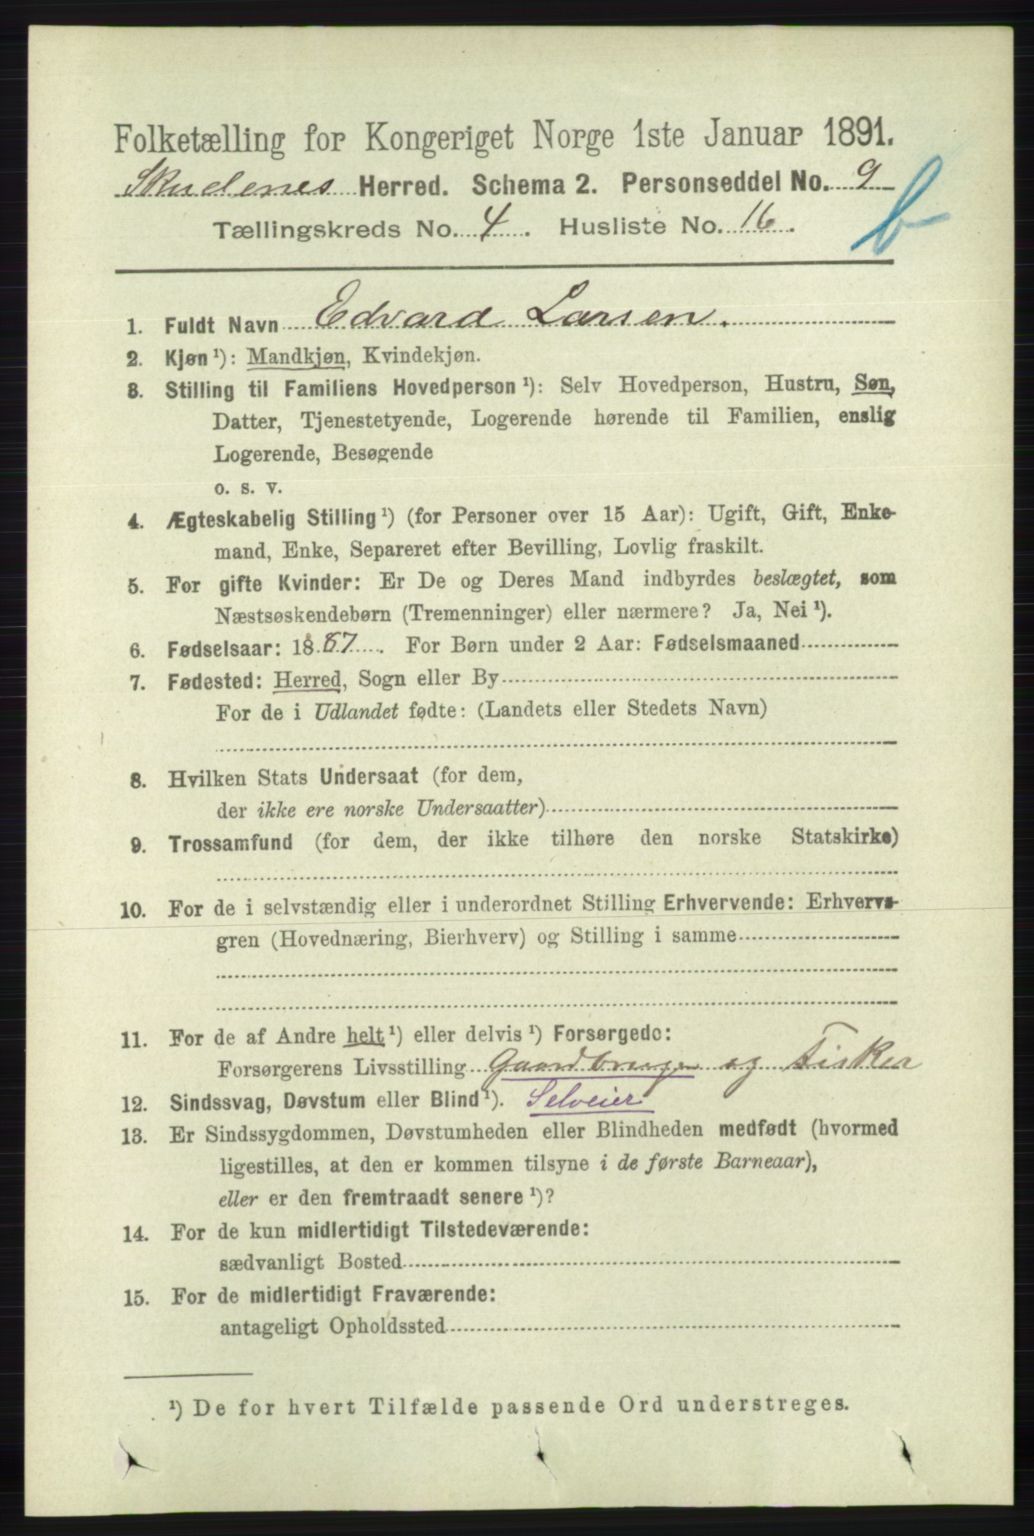 Folketælling for Kongeriget Norge 1ste Januar 1891.
Skudenes Herred. Schema 2. Personseddel No. 9
Tællingskreds No. 4. Husliste No. 16.
b
1. Fuldt Navn Edvard Larsen.
2. Kjøn ¹): Mandkjøn, Kvindekjøn.
3. Stilling til Familiens Hovedperson ¹): Selv Hovedperson, Hustru, Søn,
Datter, Tjenestetyende, Logerende hørende til Familien, enslig
Logerende, Besøgende
o. s. v.
4. Ægteskabelig Stilling ¹) (for Personer over 15 Aar): Ugift, Gift, Enke-
mand, Enke, Separeret efter Bevilling, Lovlig fraskilt.
5. For gifte Kvinder: Er De og Deres Mand indbyrdes beslægtet, som
Næstsøskendebørn (Tremenninger) eller nærmere? Ja, Nei ¹).
6. Fødselsaar: 1887. For Børn under 2 Aar: Fødselsmaaned
7. Fødested: Herred, Sogn eller By
For de i Udlandet fødte: (Landets eller Stedets Navn)
8. Hvilken Stats Undersaat (for dem,
der ikke ere norske Undersaatter)
9. Trossamfund (for dem, der ikke tilhøre den norske Statskirke)
10. For de i selvstændig eller i underordnet Stilling Erhvervende: Erhvervs-
gren (Hovednæring, Bierhverv) og Stilling i samme
11. For de af Andre helt ¹) eller delvis ¹) Forsørgede:
Forsørgerens Livsstilling Gaardbruger og Fisker
12. Sindssvag, Døvstum eller Blind ¹). Selveier
13. Er Sindssygdommen, Døvstumheden eller Blindheden medfødt (hvormed
ligestilles, at den er kommen tilsyne i de første Barneaar),
eller er den fremtraadt senere ¹)?
14. For de kun midlertidigt Tilstedeværende:
sædvanligt Bosted
15. For de midlertidigt Fraværende:
antageligt Opholdssted
¹) De for hvert Tilfælde passende Ord understreges.